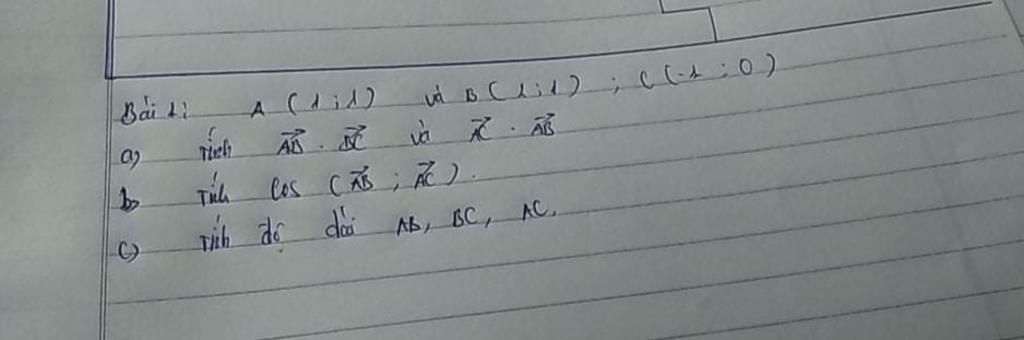 Bài 1: A (1;1) và B (1;1) ; C (-1 ; 0)
a) Tính \overrightarrow{AB} . \overrightarrow{BC} và \overrightarrow{AC} . \overrightarrow{AB}
b) Tính cos (\overrightarrow{AB} ; \overrightarrow{AC}).
c) Tính độ dài AB, BC, AC.